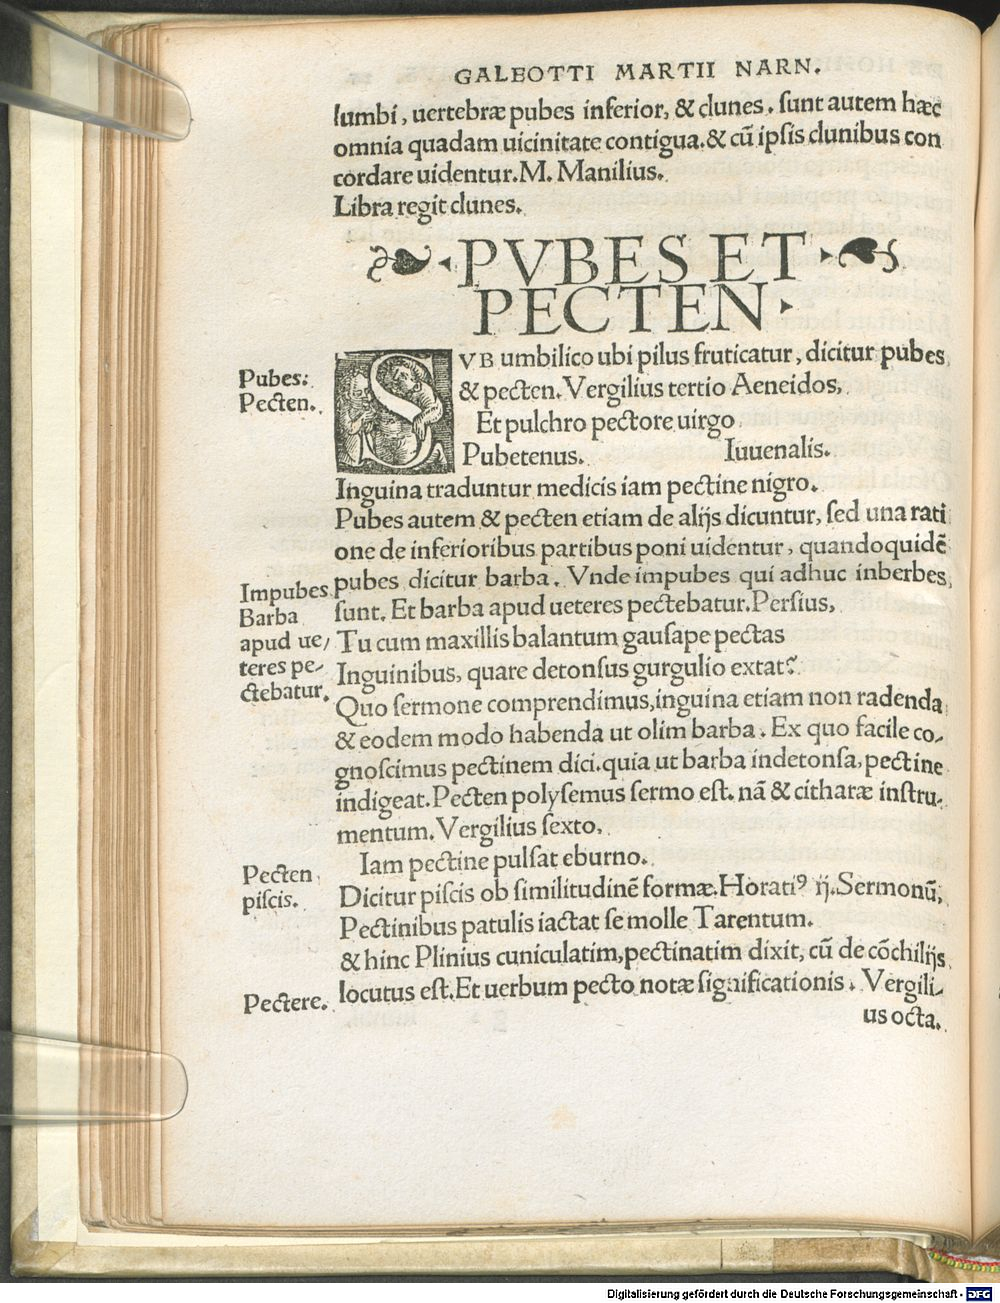 GALEOTTI MARTII NARN.
lumbi, uertebræ pubes inferior, & clunes. sunt autem hæc
omnia quadam uicinitate contigua. & cū ipsis clunibus con
cordare uidentur. M. Manilius.
Libra regit clunes.
PVBES ET
PECTEN
Pubes:
Pecten.
SVB umbilico ubi pilus fruticatur, dicitur pubes
& pecten. Vergilius tertio Aeneidos,
Et pulchro pectore uirgo
Pubetenus. Iuuenalis.
Inguina traduntur medicis iam pectine nigro.
Pubes autem & pecten etiam de alijs dicuntur, sed una rati
one de inferioribus partibus poni uidentur, quandoquidē
pubes dicitur barba. Vnde impubes qui adhuc inberbes
sunt. Et barba apud ueteres pectebatur. Persius,
Impubes
Barba
apud ue/
teres pe/
ctebatur.
Tu cum maxillis balantum gausape pectas
Inguinibus, quare detonsus gurgulio extat?
Quo sermone comprendimus, inguina etiam non radenda
& eodem modo habenda ut olim barba. Ex quo facile co-
gnoscimus pectinem dici. quia ut barba indetonsa, pectine
indigeat. Pecten polysemus sermo est. nā & citharæ instru-
mentum. Vergilius sexto,
Iam pectine pulsat eburno.
Pecten
piscis.
Dicitur piscis ob similitudinē formæ. Horatiꝰ ij. Sermonū,
Pectinibus patulis iactat se molle Tarentum.
& hinc Plinius cuniculatim, pectinatim dixit, cū de cōchilijs
Pectere.
locutus est. Et uerbum pecto notæ significationis. Vergili-
us octa.
Digitalisierung gefördert durch die Deutsche Forschungsgemeinschaft - DFG